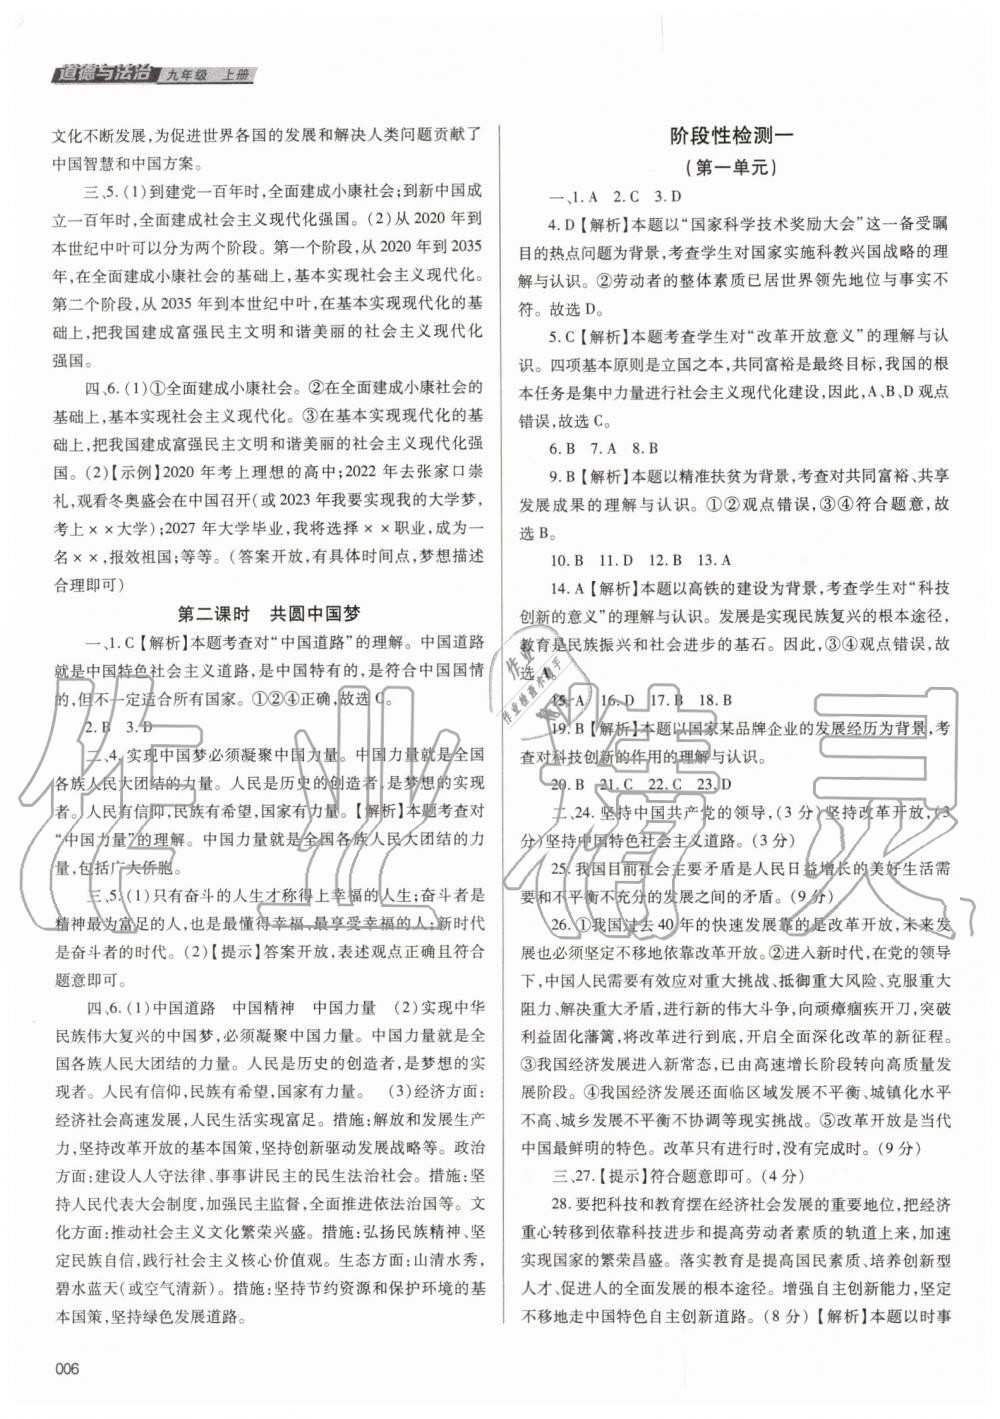 道德与法治 九年级 上册
文化不断发展,为促进世界各国的发展和解决人类问题贡献了
中国智慧和中国方案。
三、5.(1)到建党一百年时,全面建成小康社会;到新中国成
立一百年时,全面建成社会主义现代化强国。(2)从 2020 年到
本世纪中叶可以分为两个阶段。第一个阶段,从 2020 年到 2035
年,在全面建成小康社会的基础上,基本实现社会主义现代化。
第二个阶段,从 2035 年到本世纪中叶,在基本实现现代化的基
础上,把我国建成富强民主文明和谐美丽的社会主义现代化
强国。
四、6.(1)①全面建成小康社会。②在全面建成小康社会的
基础上,基本实现社会主义现代化。③在基本实现现代化的基
础上,把我国建成富强民主文明和谐美丽的社会主义现代化强
国。(2)【示例】2020 年考上理想的高中;2022 年去张家口崇
礼,观看冬奥盛会在中国召开(或 2023 年我要实现我的大学梦,
考上××大学);2027 年大学毕业,我将选择××职业,成为一
名××,报效祖国;等等。(答案开放,有具体时间点,梦想描述
合理即可)
第二课时 共圆中国梦
一、1. C【解析】本题考查对“中国道路”的理解。中国道路
就是中国特色社会主义道路,是中国特有的,是符合中国国情
的,但不一定适合所有国家。①②④正确,故选C。
2. B 3. D
二、4. 实现中国梦必须凝聚中国力量。中国力量就是全国
各族人民大团结的力量。人民是历史的创造者,是梦想的实现
者。人民有信仰,民族有希望,国家有力量。【解析】本题考查对
“中国力量”的理解。中国力量就是全国各族人民大团结的力
量,包括广大侨胞。
三、5.(1)只有奋斗的人生才称得上幸福的人生;奋斗者是
精神最为富足的人,也是最懂得幸福、最享受幸福的人;新时代
是奋斗者的时代。(2)【提示】答案开放,表述观点正确且符合
题意即可。
四、6.(1)中国道路 中国精神 中国力量 (2)实现中华
民族伟大复兴的中国梦,必须凝聚中国力量。中国力量就是全
国各族人民大团结的力量。人民是历史的创造者,是梦想的实
现者。人民有信仰,民族有希望,国家有力量。 (3)经济方面:
经济社会高速发展,人民生活实现富足。措施:解放和发展生产
力,坚持改革开放的基本国策,坚持创新驱动发展战略等。政治
方面:建设人人守法律、事事讲民主的民生法治社会。措施:坚
持人民代表大会制度,加强民主监督,全面推进依法治国等。文
化方面:推动社会主义文化繁荣兴盛。措施:弘扬民族精神、坚
定民族自信,践行社会主义核心价值观。生态方面:山清水秀,
碧水蓝天(或空气清新)。措施:坚持节约资源和保护环境的基
本国策,坚持绿色发展道路。
006
阶段性检测一
(第一单元)
一、1. A 2. C 3. D
4. D【解析】本题以“国家科学技术奖励大会”这一备受瞩
目的热点问题为背景,考查学生对国家实施科教兴国战略的理
解与认识。②劳动者的整体素质已居世界领先地位与事实不
符。故选 D。
5. C【解析】本题考查学生对“改革开放意义”的理解与认
识。四项基本原则是立国之本,共同富裕是最终目标,我国的根
本任务是集中力量进行社会主义现代化建设,因此,A、B、D 观点
错误,故选 C。
6. B 7. A 8. B
9. B【解析】本题以精准扶贫为背景,考查对共同富裕、共享
发展成果的理解与认识。①②观点错误,③④符合题意,故
选 B。
10. B 11. D 12. B 13. A
14. A【解析】本题以高铁的建设为背景,考查学生对“科技
创新的意义”的理解与认识。发展是实现民族复兴的根本途径,
教育是民族振兴和社会进步的基石。因此,③④观点错误,故
选 A。
15. A 16. D 17. B 18. B
19. B【解析】本题以国家某品牌企业的发展经历为背景,考
查对科技创新的作用的理解与认识。
20. B 21. C 22. C 23. D
二、24. 坚持中国共产党的领导,(3 分)坚持改革开放,(3
分)坚持中国特色社会主义道路。(3 分)
25. 我国目前社会主要矛盾是人民日益增长的美好生活需
要和不平衡不充分的发展之间的矛盾。(9 分)
26. ①我国过去 40 年的快速发展靠的是改革开放,未来发
展也必须坚定不移地依靠改革开放。②进入新时代,在党的领导
下,中国人民需要有效应对重大挑战、抵御重大风险、克服重大
阻力、解决重大矛盾,进行新的伟大斗争,向顽瘴痼疾开刀,突破
利益固化藩篱,将改革进行到底,开启全面深化改革的新征程。
③我国经济发展进入新常态,已由高速增长阶段转向高质量发
展阶段。④我国经济发展还面临区域发展不平衡、城镇化水平
不高、城乡发展不平衡不协调等现实挑战。⑤改革开放是当代
中国最鲜明的特色。改革只有进行时,没有完成时。(9 分)
三、27.【提示】符合题意即可。(4 分)
28. 要把科技和教育摆在经济社会发展的重要地位,把经济
重心转移到依靠科技进步和提高劳动者素质的轨道上来,加速
实现国家的繁荣昌盛。落实教育是提高国民素质、培养创新型
人才、促进人的全面发展的根本途径。增强自主创新能力,坚定
不移地走中国特色自主创新道路。(8 分)【解析】本题以时事
作业精灵